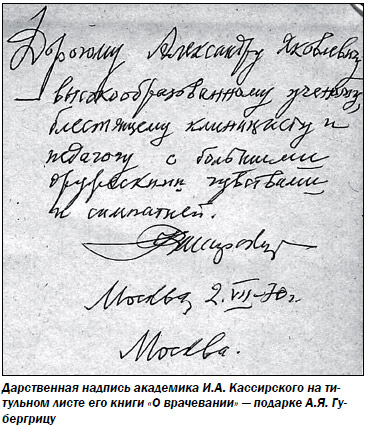 Дорогому Александру Яковлевичу
высокообразованному ученому,
блестящему клиницисту и
педагогу с большими
дружескими чувствами
и симпатией.
Кассирский
Москва, 2.VII-70 г.
Москва.
Дарственная надпись академика И.А. Кассирского на ти-
тульном листе его книги «О врачевании» — подарке А.Я. Гу-
бергрицу